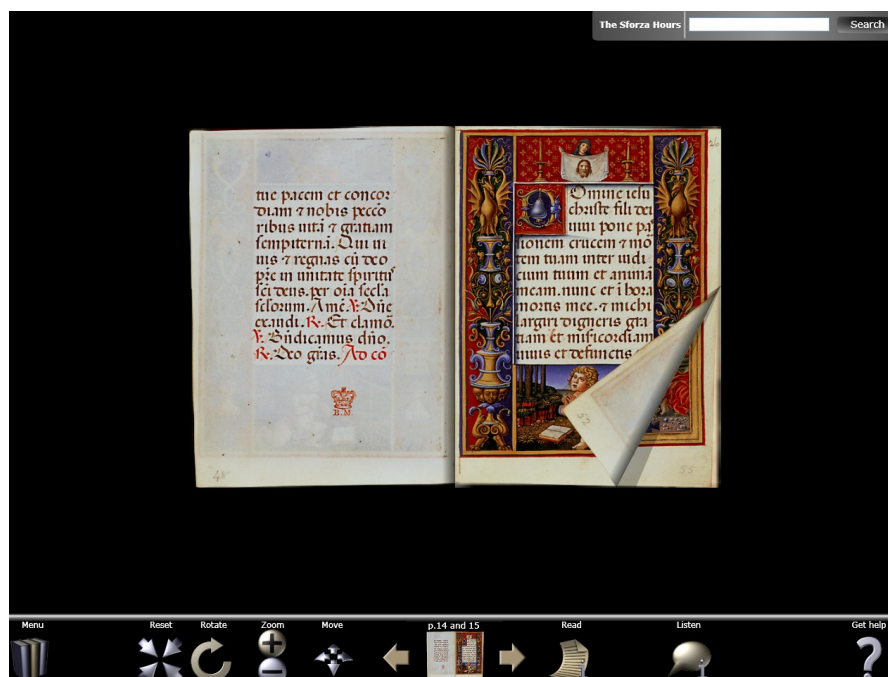 The Sforza Hours Search
tue pacem et concor
diam ⁊ nobis pecco
ribus uitã ⁊ gratiam
sempiternã. Qui ui
uis ⁊ regnas cũ deo
pr̃e in unitate spiritus
sc̃i deus. per oĩa secl̃a
seclorum. Amẽ. ℣. Dñe
exaudi. ℟. Et clamõ.
℣. Bñdicamus dño.
℟. Deo gr̃as. Ad cõ
B.M.
48
Domine iesu
christe fili dei
uiui pone pas
sionem crucem ⁊ mõ
tem tuam inter iudi
cium tuum et animã
meam. nunc et ĩ hora
mortis mee. ⁊ michi
largiri digneris gra
tiam et misericordiam
uiuis et defunctis
52
55
Menu Reset Rotate Zoom Move p.14 and 15 Read Listen Get help